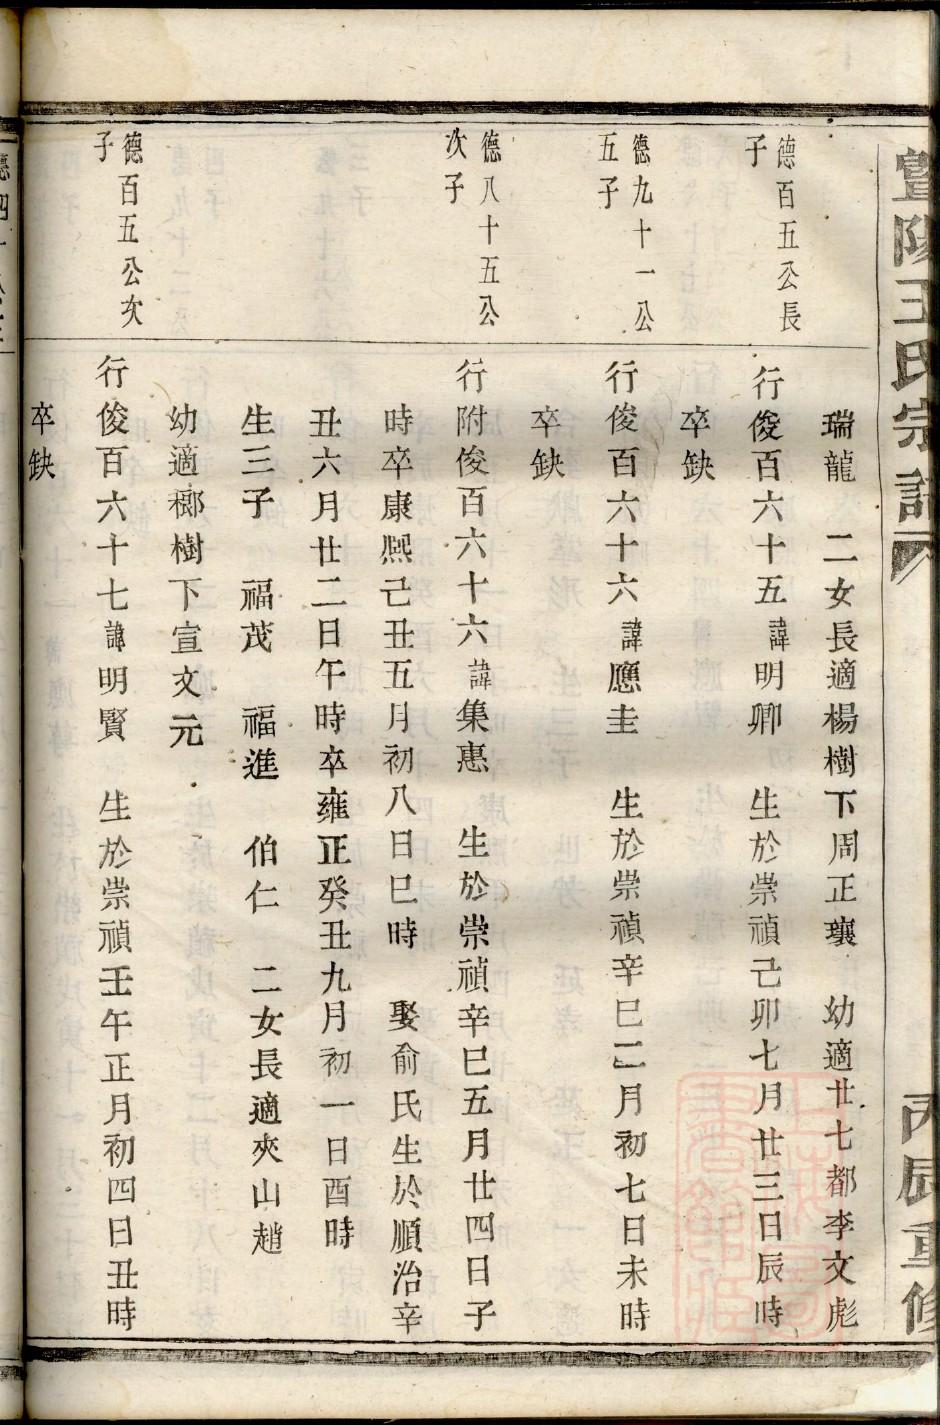 暨陽王氏宗譜
丙辰重修
瑞龍　二女長適楊樹下周正瓖　幼適廿七都李文彪
德百五公長
子
行俊百六十五諱明卿　生於崇禎己卯七月廿三日辰時
卒缺
德九十一公
五子
行俊百六十六諱應圭　生於崇禎辛巳二月初七日未時
卒缺
德八十五公
次子
行附俊百六十六諱集惠　生於崇禎辛巳五月廿四日子
時卒康熙己丑五月初八日巳時　娶俞氏生於順治辛
丑六月廿二日午時卒雍正癸丑九月初一日酉時
生三子　福茂　福進　伯仁　二女長適夾山趙
幼適㮾樹下宣文元
德百五公次
子
行俊百六十七諱明賢　生於崇禎壬午正月初四日丑時
卒缺